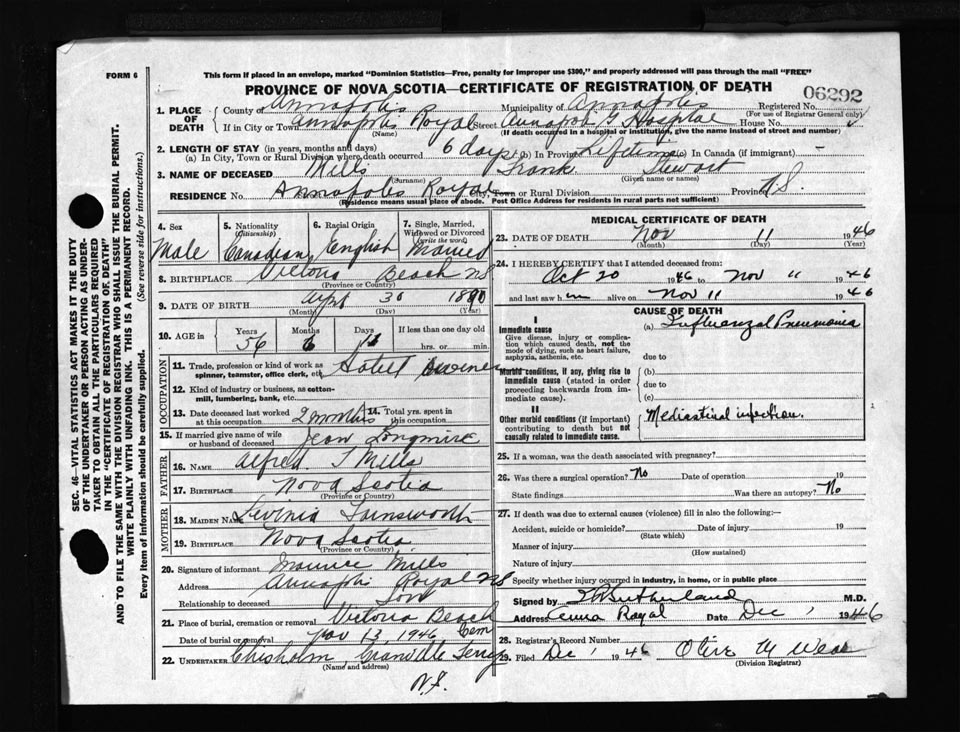 FORM 6
This form if placed in an envelope, marked "Dominion Statistics—Free, penalty for improper use $300," and properly addressed will pass through the mail "FREE"
PROVINCE OF NOVA SCOTIA—CERTIFICATE OF REGISTRATION OF DEATH
06292
1. PLACE OF DEATH County of Annapolis Municipality of Annapolis Registered No.
(For use of Registrar General only)
If in City or Town Annapolis Royal Street Annapolis G Hospital House No.
(Name) (If death occurred in a hospital or institution, give the name instead of street and number)
2. LENGTH OF STAY (in years, months and days)
(a) In City, Town or Rural Division where death occurred 6 days (b) In Province Lifetime (c) In Canada (if immigrant) —
3. NAME OF DECEASED Mills Frank Stewart
(Surname) (Given name or names)
RESIDENCE No. Annapolis Royal City, Town or Rural Division Province N.S.
(Residence means usual place of abode. Post Office Address for residents in rural parts not sufficient)
4. Sex 5. Nationality (Citizenship) 6. Racial Origin 7. Single, Married, Widowed or Divorced (write the word)
Male Canadian English Married
8. BIRTHPLACE Victoria Beach NS
(Province or Country)
9. DATE OF BIRTH Sept 30 1890
(Month) (Day) (Year)
10. AGE in Years Months Days If less than one day old
56 hrs. or min.
OCCUPATION
11. Trade, profession or kind of work as spinner, teamster, office clerk, etc. Hotel owner
12. Kind of industry or business, as cotton-mill, lumbering, bank, etc.
13. Date deceased last worked at this occupation 2 months 14. Total yrs. spent in this occupation
15. If married give name of wife or husband of deceased Jean Longmire
FATHER
16. NAME Alfred T Mills
17. BIRTHPLACE Nova Scotia
(Province or Country)
MOTHER
18. MAIDEN NAME Levinia Farnsworth
19. BIRTHPLACE Nova Scotia
(Province or Country)
20. Signature of informant Maurice Mills
Address Annapolis Royal NS
Relationship to deceased Son
21. Place of burial, cremation or removal Victoria Beach
Date of burial or removal Nov 13, 1946 Cem
22. UNDERTAKER Chisholm, Granville Ferry
(Name and address)
N.S.
MEDICAL CERTIFICATE OF DEATH
23. DATE OF DEATH Nov 11 1946
(Month) (Day) (Year)
24. I HEREBY CERTIFY that I attended deceased from:
Oct 20 1946 to Nov 11 1946
and last saw him alive on Nov 11 1946
CAUSE OF DEATH
I
Immediate cause (a) Influenzal Pneumonia
Give disease, injury or complication which caused death, not the mode of dying, such as heart failure, asphyxia, asthenia, etc.
due to
Morbid conditions, if any, giving rise to immediate cause (stated in order proceeding backwards from immediate cause).
(b)
due to
(c)
II
Other morbid conditions (if important) contributing to death but not causally related to immediate cause. Mediastinal infection.
25. If a woman, was the death associated with pregnancy?
26. Was there a surgical operation? No Date of operation 19
State findings Was there an autopsy? No
27. If death was due to external causes (violence) fill in also the following:—
Accident, suicide or homicide? Date of injury 19
(State which)
Manner of injury
(How sustained)
Nature of injury
Specify whether injury occurred in industry, in home, or in public place
Signed by Sutherland M.D.
Address Anna Royal Date Dec 1 1946
28. Registrar's Record Number
29. Filed Dec 1 1946 Olive M Wear
(Division Registrar)
SEC. 46—VITAL STATISTICS ACT MAKES IT THE DUTY
OF THE UNDERTAKER OR PERSON ACTING AS UNDER-
TAKER TO OBTAIN ALL THE PARTICULARS REQUIRED
IN THE "CERTIFICATE OF REGISTRATION OF DEATH"
AND TO FILE THE SAME WITH THE DIVISION REGISTRAR WHO SHALL ISSUE THE BURIAL PERMIT.
WRITE PLAINLY WITH UNFADING INK. THIS IS A PERMANENT RECORD.
Every item of information should be carefully supplied. (See reverse side for instructions.)